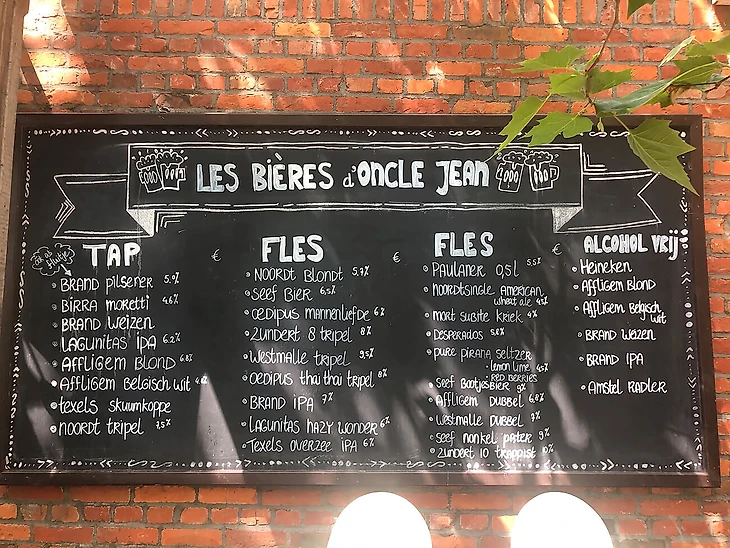 LES BIÈRES d'ONCLE JEAN
TAP €
BRAND pilsener 5.0%
BIRRA moretti 4.6%
BRAND weizen
LAGUNITAS IPA 6.2%
AFFLIGEM BLOND 6.8%
AFFLIGEM BELGISCH wit
texels skuumkoppe
NOORDT tripel
FLES €
NOORDT BLONDT 5,7%
SEEF BIER 6,5%
OEDIPUS MANNENLIEFDE 6%
ZUNDERT 8 tripel 8%
Westmalle tripel 9,5%
OEDIPUS thai thai tripel 8%
BRAND IPA 7%
LAGUNITAS HAZY WONDER 6%
Texels overzee IPA 6%
FLES €
PAULANER 0,5l 5,5%
NOORDTSINGLE AMERICAN
wheat ale 4,5%
mort subite kriek 4%
DESPERADOS
pure pirana seltzer
- lemon lime 4,5%
- RED BERRIES
SEEF BOOTJESBIER
AFFLIGEM DUBBEL
Westmalle DUBBEL
SEEF nonkel pater 9%
ZUNDERT 10 trappist 10%
ALCOHOL VRIJ
Heineken
Affligem BLOND
Affligem Belgisch
wit
BRAND WEIZEN
BRAND IPA
Amstel RADLER